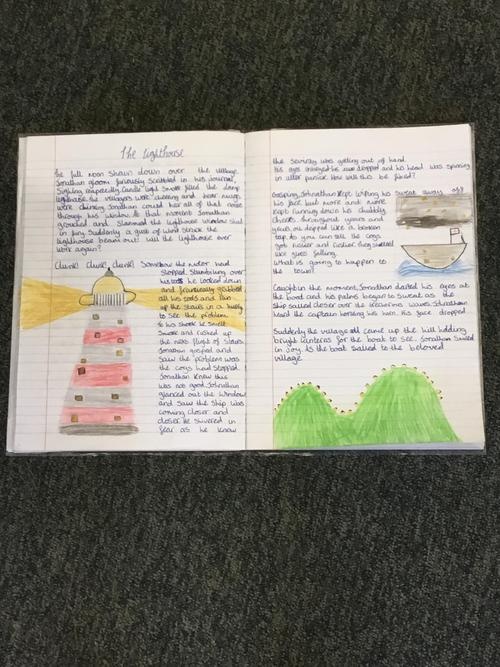 The Lighthouse
The full moon shawn down over the village.
Jonathan gloom furiously scribbled in his journal,
Sighing exasperatedly. Candle light smoke filled the damp
lighthouse. The villagers were cheering and beer mugs
were chinking. Jonathan could hear all of that noise
through his window. In that moment Jonathan
groaned and slammed the lighthouse window shut
in fury. Suddenly a gust of wind struck the
lighthouse beam out! will the lighthouse ever
work again?
Clunk! Clunk! Clunk! Somehow the motor had
stopped. Stumbling over
his he looked down
and frantically grabbed
all his tools and ran
up the stairs in a hurry
to see the problem.
to his shock he smelt
smoke and rushed up
the next flight of stairs.
Jonathan gasped and
saw the problem was
the cogs had stopped.
Jonathan knew this
was not good. Johnathan
glanced out the window
and saw the ship was
coming closer and
closer. he shivered in
fear as he knew
the severity was getting out of hand.
His eyes dropped and his head was spinning
in utter panick. How will this be fixed?
Gasping, Johnathan kept wiping his sweat away off
his face but more and more
kept running down his chubby
cheeks. throughout years and
years oil dripped like a broken
tap. As you can tell the cogs
got rustier and rustier. they
like gears falling.
What is going to happen to
the town?
Caught in the moment, Jonathan darted his eyes at
the boat and his palms began to sweat as the
ship sailed closer over the waves. Johnathan
heard the captain honking his horn. His face dropped
Suddenly the village all came up the hill holding
bright lanterns for the boat to see. Jonathan smiled
in joy. As the boat sailed to the beloved
village.